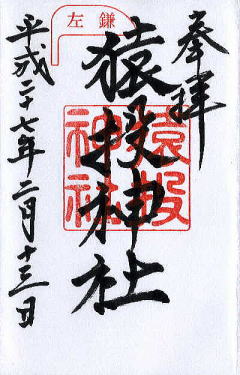 奉拝
猿投神社
猿投
神社
左鎌
平成二十七年二月十三日